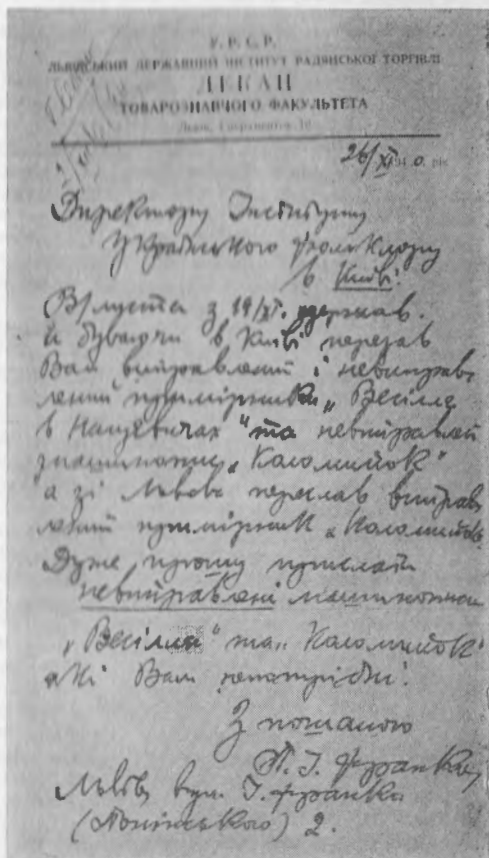 У. Р. С. Р.
ЛЬВІВСЬКИЙ ДЕРЖАВНИЙ ІНСТИТУТ РАДЯНСЬКОЇ ТОРГІВЛІ
ДЕКАН
ТОВАРОЗНАВЧОГО ФАКУЛЬТЕТА
26/XI 194 0. рік
Директору Інституту
Українського фольклору
в Київі.
В/листа з 19/XI. одержав.
И бувши в Київі передав
Вам виправлений і невиправ
лений примірники „Весілля
в Нагуєвичах" та невиправлений
машинопис „Коломийок"
а зі Львова переслав виправ
лений примірник „Коломийок
Дуже прошу прислати
невиправлені машинописи
„Весілля" та „Коломийок"
які Вам непотрібні.
З пошаною
П. І. Франко
Львів вул. І. Франка
(Понінського) 2.